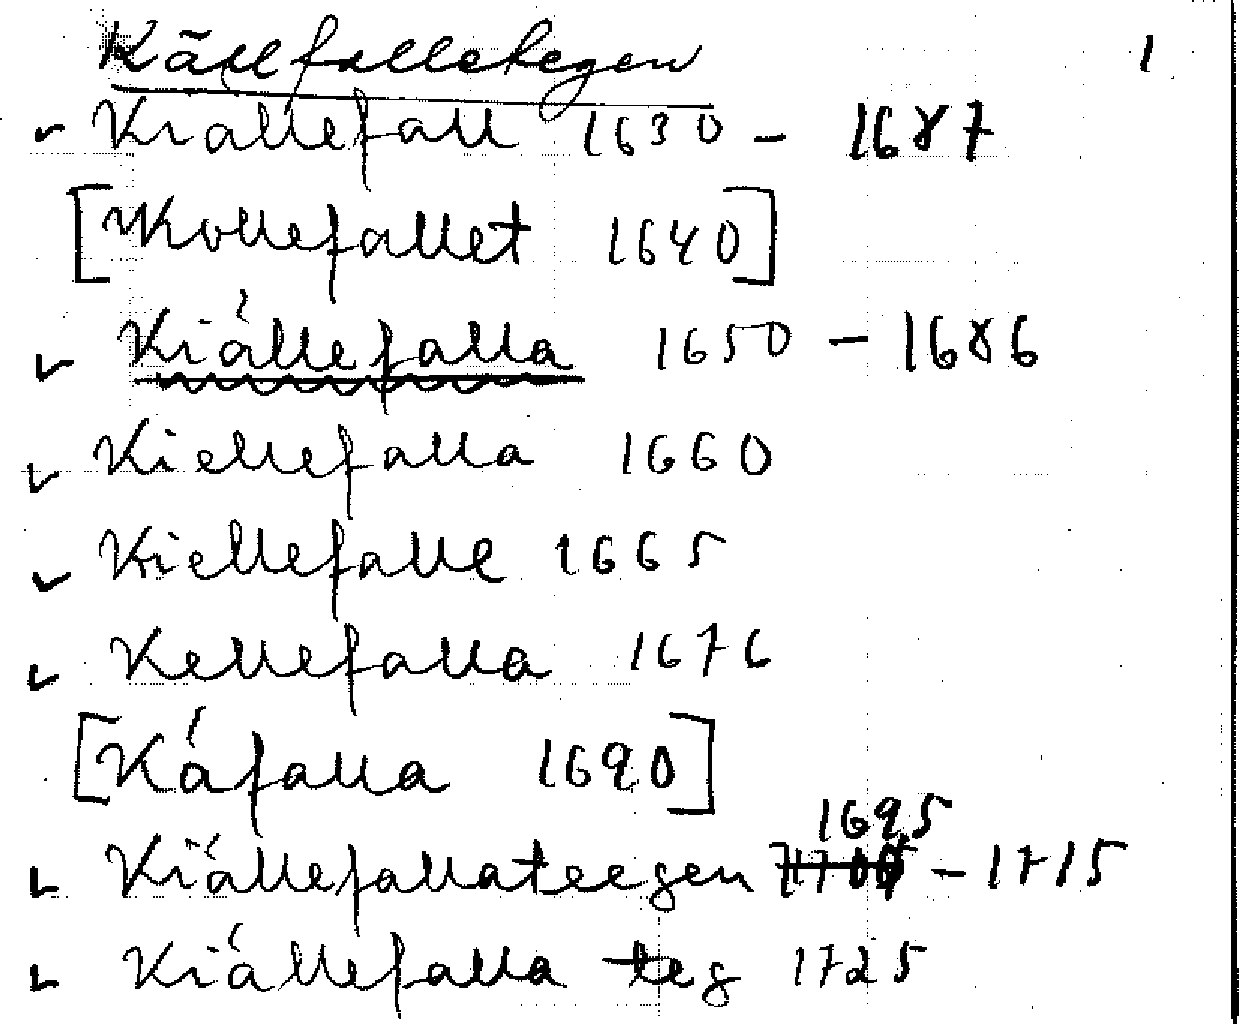 Källfalletegen 1
Kiallefall 1630 – 1687
[Kollefallet 1640]
Kiállefalla 1650 – 1686
Kiellefalla 1660
Kiellefalle 1665
Kellefalla 1676
[Káfalla 1690]
1695
Kiállefallateegen 1700 – 1715
Kiállefalla teg 1725